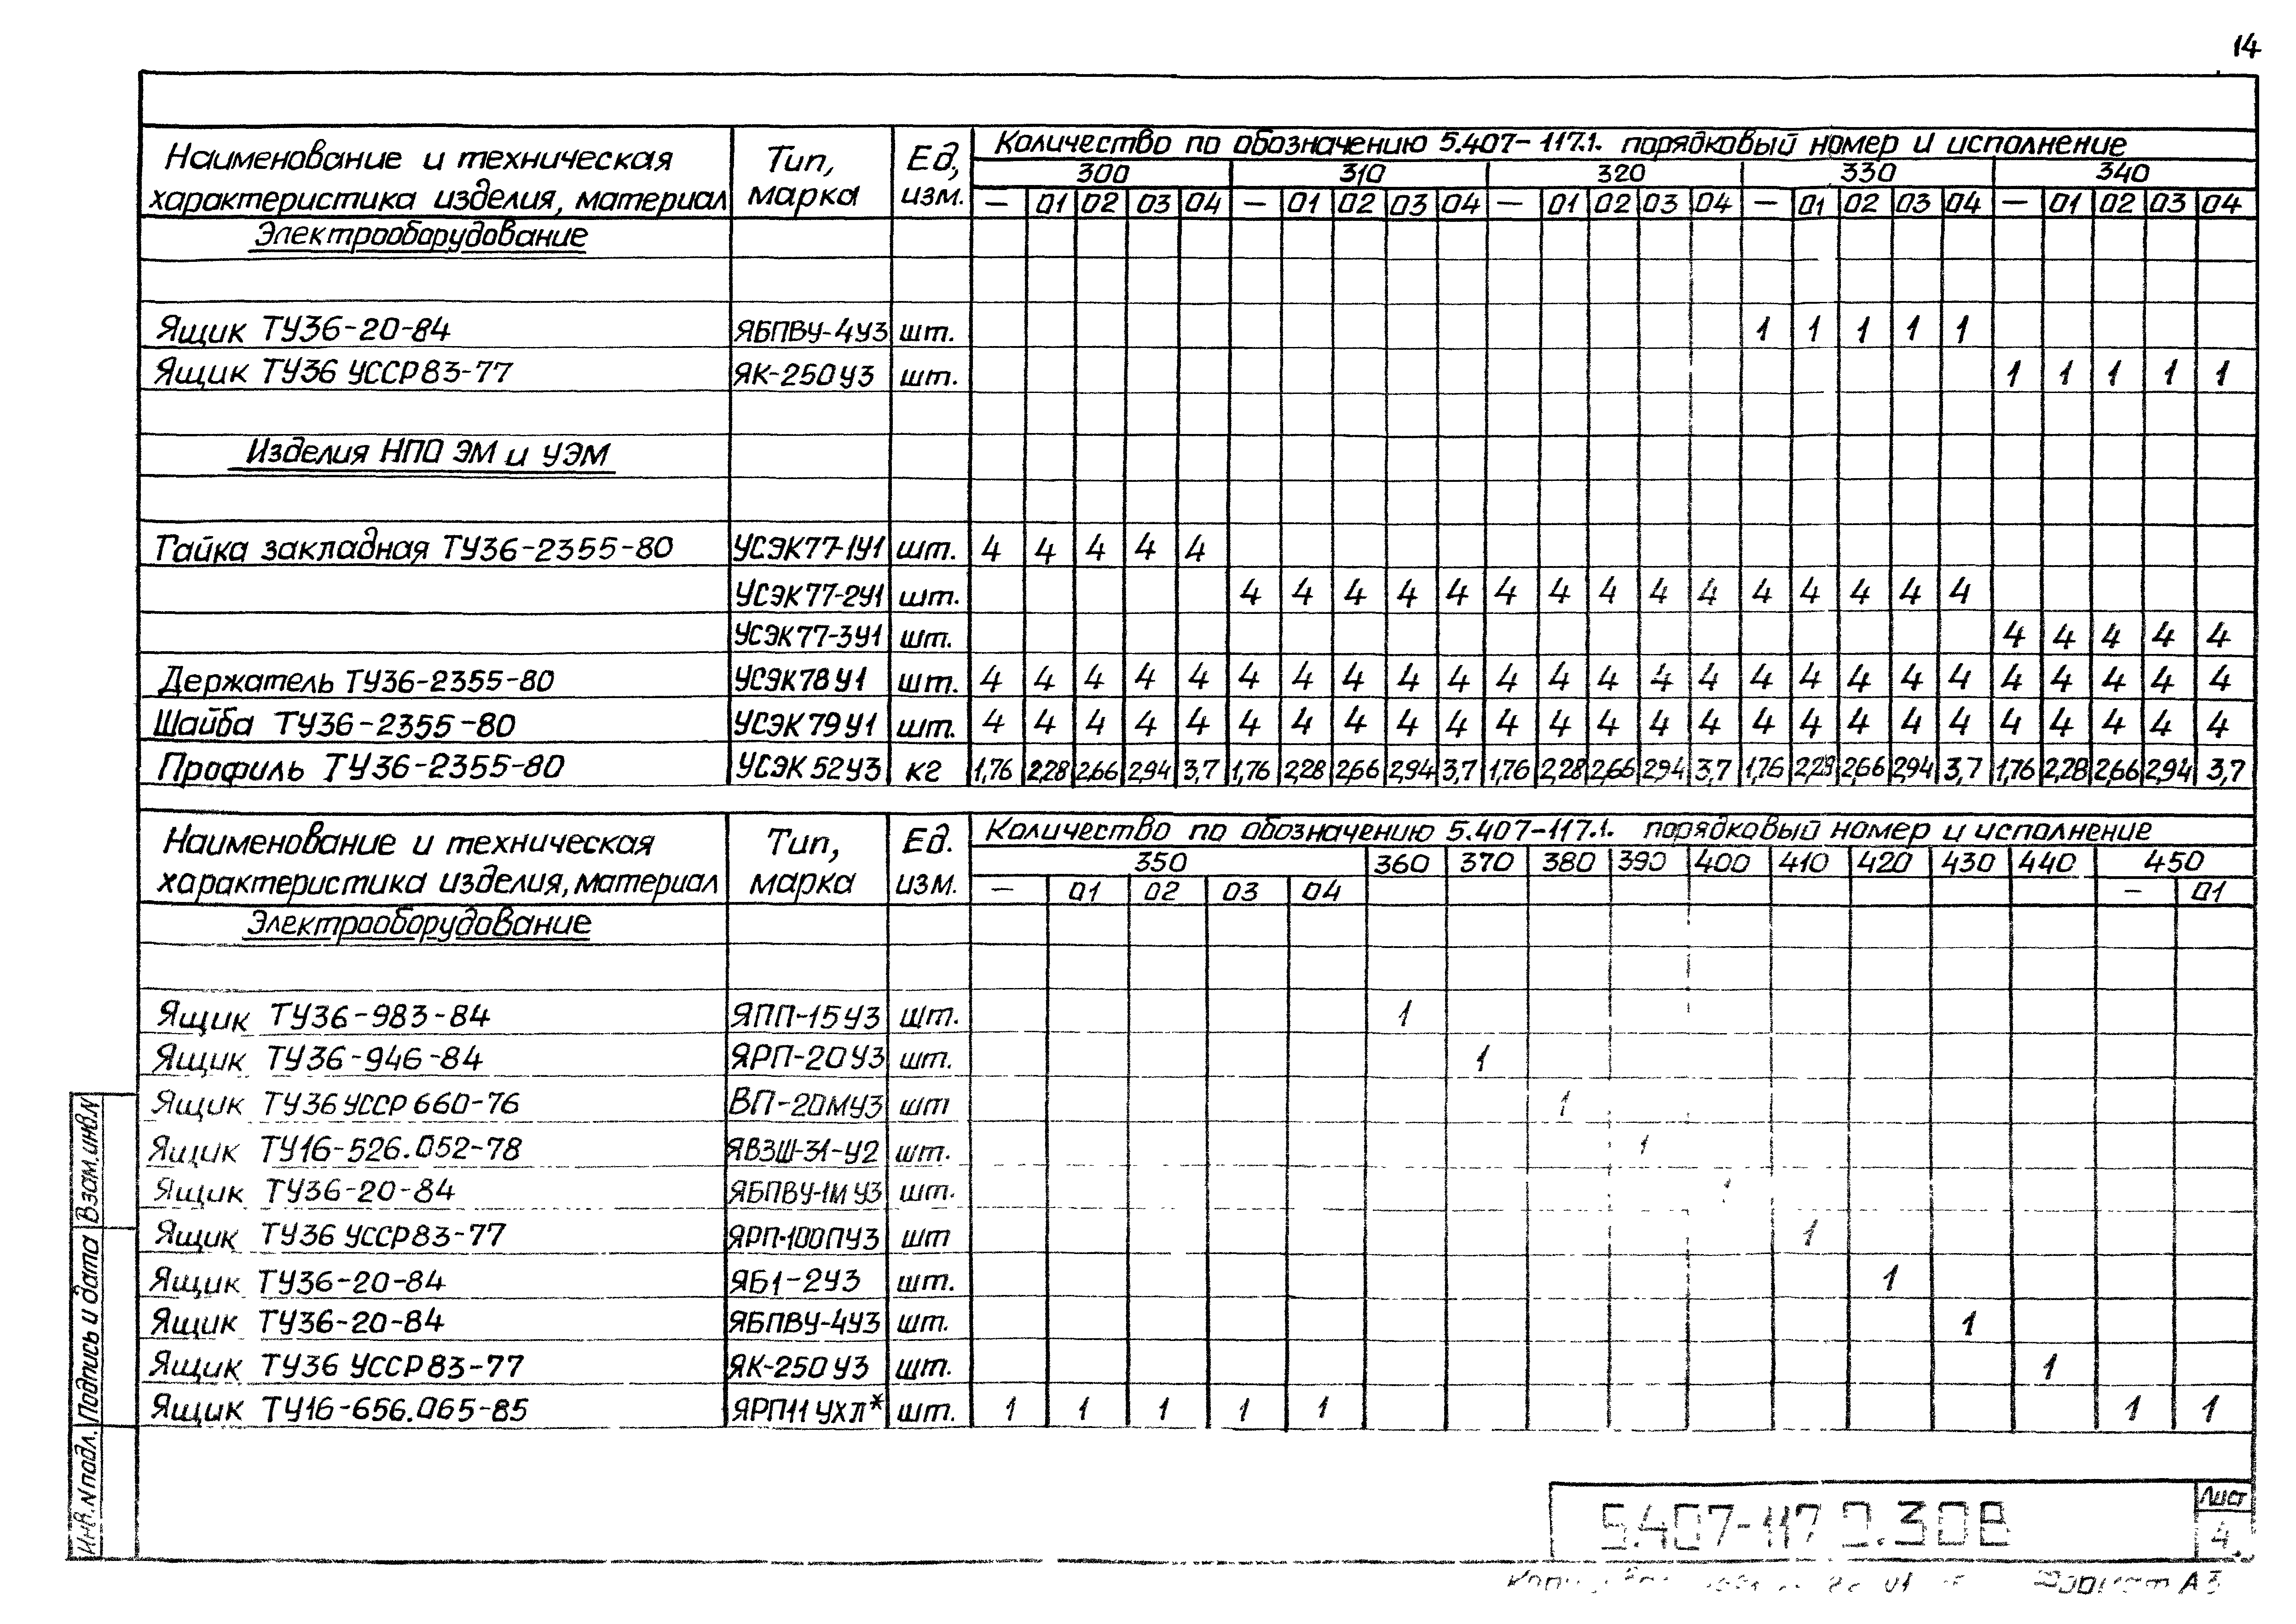 14
Наименование и техническая характеристика изделия, материал
Тип, марка
Ед, изм.
Количество по обозначению 5.407-117.1. порядковый номер и исполнение
300 310 320 330 340
— 01 02 03 04 — 01 02 03 04 — 01 02 03 04 — 01 02 03 04 — 01 02 03 04
Электрооборудование
Ящик ТУ36-20-84 ЯБПВУ-4У3 шт. 1 1 1 1 1
Ящик ТУ36 УССР83-77 ЯК-250У3 шт. 1 1 1 1 1
Изделия НПО ЭМ и УЭМ
Гайка закладная ТУ36-2355-80 УСЭК77-1У1 шт. 4 4 4 4 4
УСЭК77-2У1 шт. 4 4 4 4 4 4 4 4 4 4 4 4 4 4 4
УСЭК77-3У1 шт. 4 4 4 4 4
Держатель ТУ36-2355-80 УСЭК78У1 шт. 4 4 4 4 4 4 4 4 4 4 4 4 4 4 4 4 4 4 4 4 4 4 4 4 4
Шайба ТУ36-2355-80 УСЭК79У1 шт. 4 4 4 4 4 4 4 4 4 4 4 4 4 4 4 4 4 4 4 4 4 4 4 4 4
Профиль ТУ36-2355-80 УСЭК52У3 кг 1,76 2,28 2,66 2,94 3,7 1,76 2,28 2,66 2,94 3,7 1,76 2,28 2,66 2,94 3,7 1,76 2,28 2,66 2,94 3,7 1,76 2,28 2,66 2,94 3,7
Наименование и техническая характеристика изделия, материал
Тип, марка
Ед. изм.
Количество по обозначению 5.407-117.1. порядковый номер и исполнение
350 360 370 380 390 400 410 420 430 440 450
— 01 02 03 04 — 01
Электрооборудование
Ящик ТУ36-983-84 ЯПП-15У3 шт. 1
Ящик ТУ36-946-84 ЯРП-20У3 шт. 1
Ящик ТУ36 УССР 660-76 ВП-20МУ3 шт 1
Ящик ТУ16-526.052-78 ЯВЗШ-31-У2 шт. 1
Ящик ТУ36-20-84 ЯБПВУ-1МУ3 шт. 1
Ящик ТУ36 УССР83-77 ЯРП-100ПУ3 шт 1
Ящик ТУ36-20-84 ЯБ1-2У3 шт. 1
Ящик ТУ36-20-84 ЯБПВУ-4У3 шт. 1
Ящик ТУ36 УССР83-77 ЯК-250У3 шт. 1
Ящик ТУ16-656.065-85 ЯРП11УХЛ* шт. 1 1 1 1 1 1 1
Инв.Nподл. Подпись и дата Взам.инв.N
5.407-117 0.30В
Лист
4
Формат А3